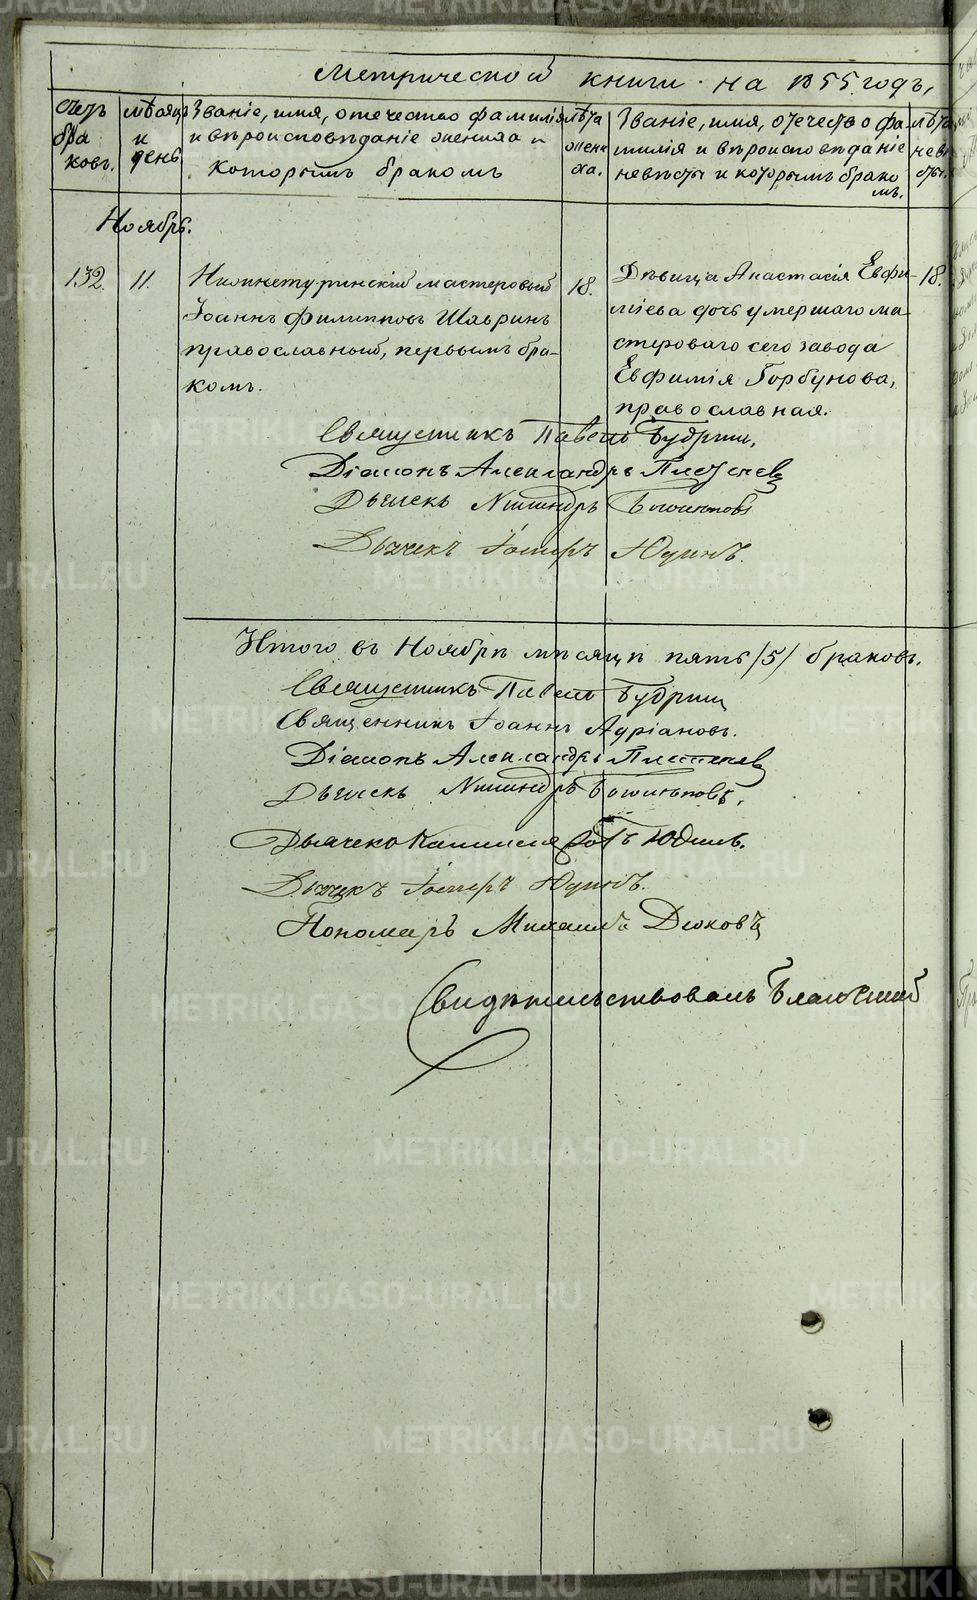 Метрической книги на 1855 годъ,
Счетъ браковъ.
мѣсяцъ и день
Званіе, имя, отечество фамилія
и вѣроисповѣданіе жениха и
которымъ бракомъ
лѣта жениха.
Званіе, имя, отечество фа-
милія и вѣроисповѣданіе
невѣсты и которымъ брако
мъ.
лѣта невѣсты.
Ноябрь.
132.
11.
Нижнетуринскій мастеровый
Іоаннъ Филипповъ Шавринъ
православный, первымъ бра-
комъ.
18.
Дѣвица Анастасія Евфи-
міева дочь умершаго ма-
стероваго сего завода
Евфимія Горбунова,
православная.
18.
Священникъ Павелъ Будринъ,
Діаконъ Александръ
Дьячекъ Никандръ
Дьячекъ Іосифъ Юдинъ.
Итого въ Ноябрѣ мѣсяцѣ пять /5/ браковъ.
Священникъ Павелъ Будринъ
Священникъ Іоаннъ Адріановъ.
Діаконъ Александръ
Дьячекъ Никандръ
Юдинъ.
Дьячекъ Іосифъ Юдинъ.
Пономарь Михаилъ Дюковъ
Свидѣтельствовалъ
METRIKI.GASO-URAL.RU